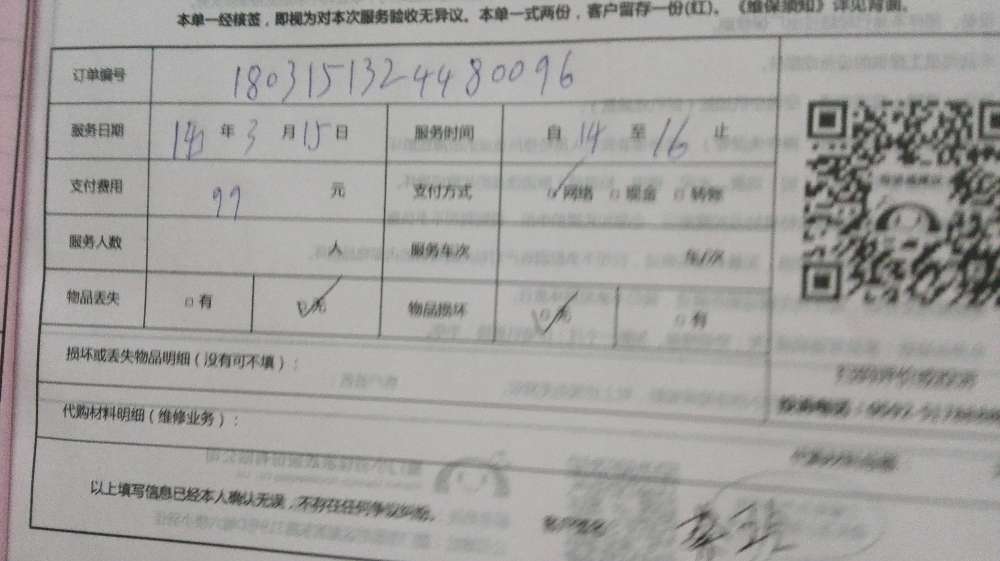 本单一经核签，即视为对本次服务验收无异议。本单一式两份，客户留存一份(红)。《维保须知》详见背面。
订单编号 1803151324480096
服务日期 年 3 月 15 日 服务时间 自 14 至 16 止
支付费用 99 元 支付方式 网络 现金 转账
服务人数 人 服务车次 车/次
物品丢失 有 无 物品损坏 无 有
损坏或丢失物品明细（没有可不填）：
代购材料明细（维修业务）：
以上填写信息已经本人确认无误，不存在任何争议纠纷。
客户签名：